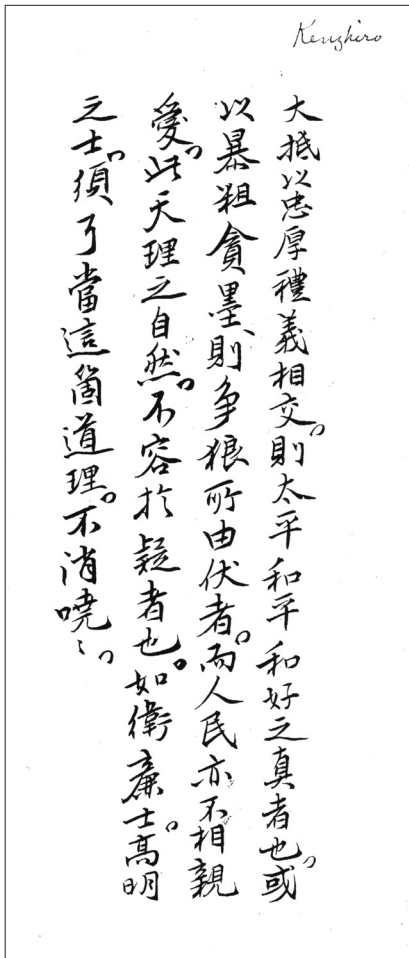 Kenzhiro
大抵以忠厚禮義相交。則太平和平和好之真者也。或
以暴粗貪墨、則争狠所由伏者。而人民亦不相親
愛。此天理之自然。不容於疑者也。如衛廉士。高明
之士。須了當這箇道理。不消嘵〻。